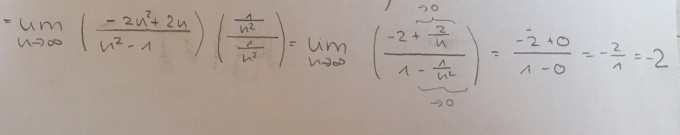 = lim n→∞ ( (-2n² + 2n) / (n² - 1) ) ( (1/n²) / (1/n²) ) = lim n→∞ ( (-2 + 2/n) / (1 - 1/n²) ) = (-2 + 0) / (1 - 0) = -2/1 = -2
→0
→0